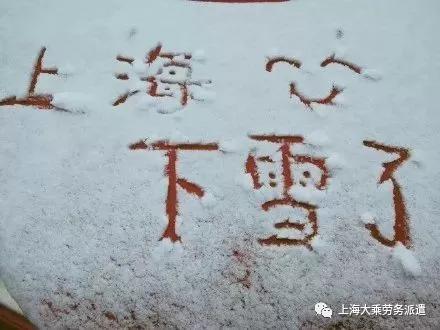 上海
下雪了
上海大乘劳务派遣